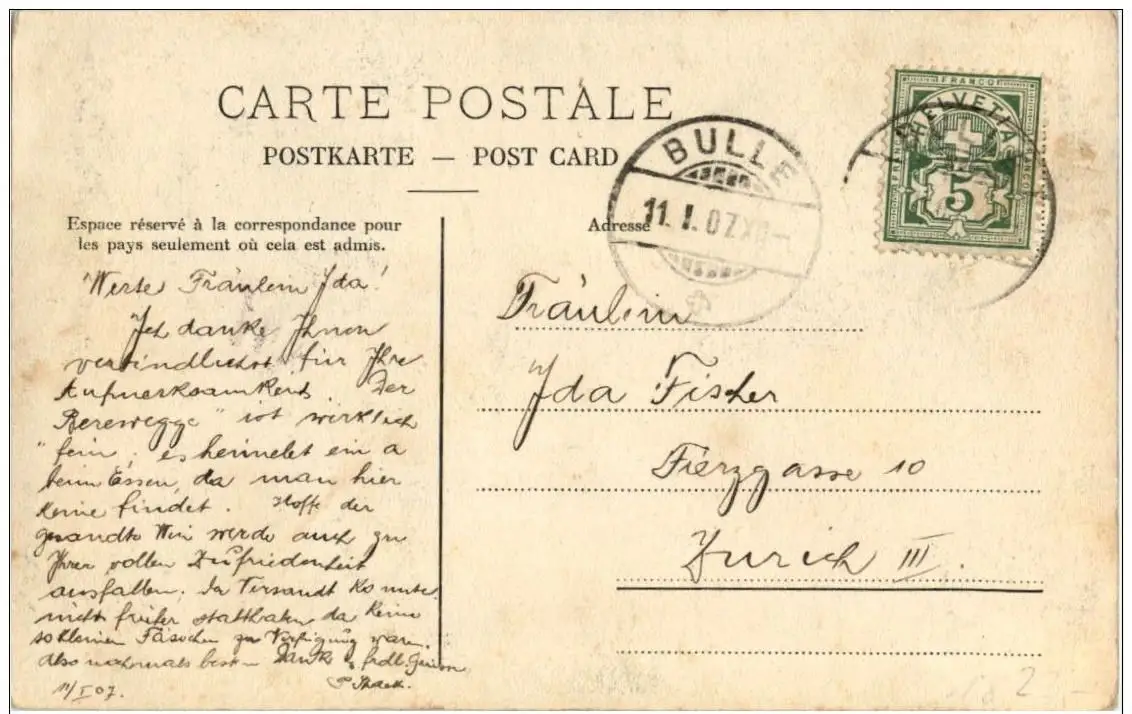 CARTE POSTALE
POSTKARTE — POST CARD
Espace réservé à la correspondance pour
les pays seulement où cela est admis.
Adresse
BULLE
11. I. 07. X
FRANCO
HELVETIA
5
Werte Fräulein Ida!
Ich danke Ihnen
verbindlichst für Ihre
Aufmerksamkeit. Der
"Berewegge" ist wirklich
fein, es heimelet ein a
beim Essen, da man hier
keine findet. Hoffe der
gesandte Wein werde auch zu
Ihrer vollen Zufriedenheit
ausfallen. Der Versandt konnte
nicht früher statthaben da keine
so kleinen Fässchen zur Verfügung waren.
Also nochmals besten Danke & frdl.
11/I 07.
Fräulein
Ida Fischer
Fierzgasse 10
Zürich III.
2